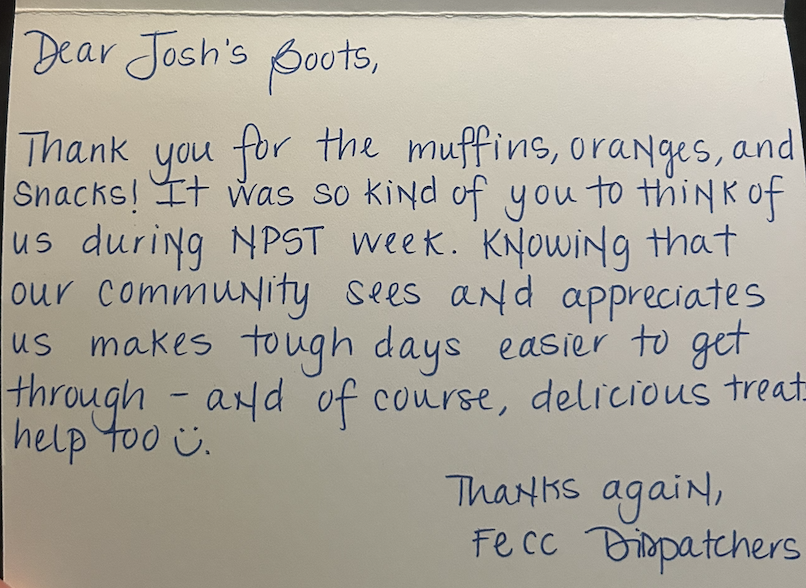 Dear Josh's Boots,
Thank you for the muffins, oranges, and
snacks! It was so kind of you to think of
us during NPST week. Knowing that
our community sees and appreciates
us makes tough days easier to get
through - and of course, delicious treats
help too ☺.
Thanks again,
FECC Dispatchers